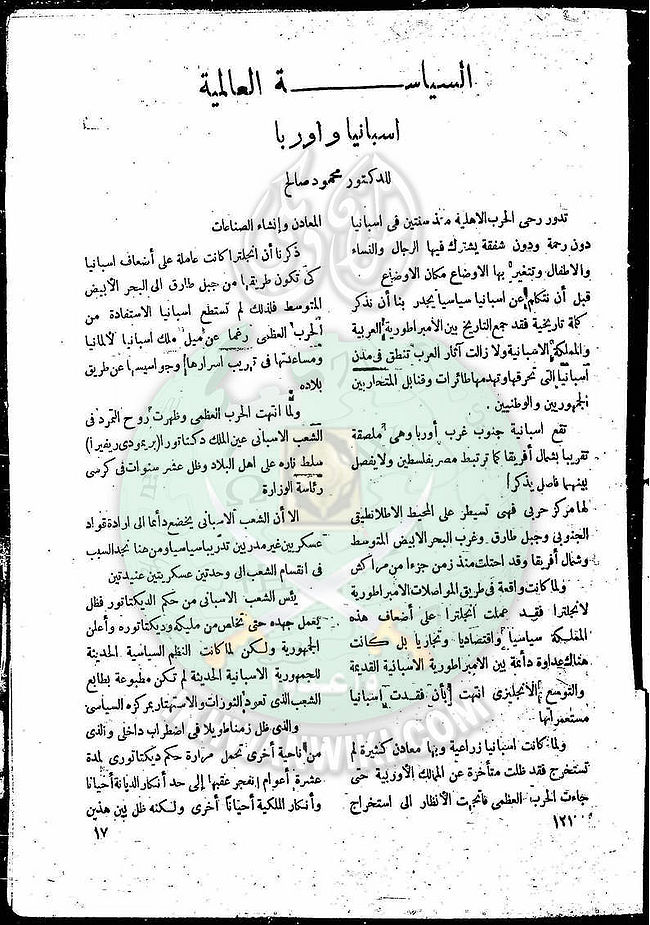 السياسة العالمية
اسبانيا و اوربا
للدكتور محمود صالح
تدور رحى الحرب الاهلية منذ سنتين فى اسبانيا
دون رحمة ودون شفقة يشترك فيها الرجال والنساء
والاطفال وتتغير بها الاوضاع مكان الاوضاع
قبل أن نتكلم عن اسبانيا سياسيا يجدر بنا أن نذكر
كلمة تاريخية فقد جمع التاريخ بين الأمبراطورية العربية
والمملكة الاسبانية ولا زالت آثار العرب تنطق فى مدن
أسبانيا التى تحرقها وتهدمها طائرات وقنابل المتحاربين
الجمهوريين والوطنيين .
تقع اسبانية جنوب غرب أوربا وهى ملصقة
تقريبا بشمال أفريقا كما ترتبط مصر بفلسطين ولا يفصل
بينهما فاصل يذكر
لها مركز حربى فهى تسيطر على المحيط الاطلانطيقى
الجنوبى وجبل طارق وغرب البحر الابيض المتوسط
وشمال أفريقا وقد احتلت منذ زمن جزءا من مراكش
ولما كانت واقعة فى طريق المواصلات الامبراطورية
لانجلترا فقد عملت انجلترا على أضعاف هذه
المملكة سياسيا واقتصاديا وتجاريا بل كانت
هناك عداوة دائمة بين الامبراطورية الاسبانية القديمة
والتوسع الانجليزى انتهت بأن فقدت اسبانيا
مستعمراتها
ولما كانت اسبانيا زراعية وبها معادن كثيرة لم
تستخرج فقد ظلت متأخرة عن الممالك الأوربية حتى
جاءت الحرب العظمى فاتجهت الأنظار الى استخراج
المعادن وإنشاء الصناعات
ذكرنا أن انجلترا كانت عاملة على أضعاف اسبانيا
كى تكون طريقها من جبل طارق الى البحر الأبيض
المتوسط فلذلك لم تستطع اسبانيا الاستفادة من
الحرب العظمى رغما عن ميل ملك اسبانيا لألمانيا
ومساعدتها فى تهريب اسرارها وجواسيسها عن طريق
بلاده
ولما انتهت الحرب العظمى وظهرت روح التمرد فى
الشعب الاسبانى عين الملك دكتاتورا (بريمودى ريفيرا)
سلط ناره على اهل البلاد وظل عشر سنوات فى كرسى
رئاسة الوزارة
الا أن الشعب الاسبانى يخضع دائما الى ارادة قواد
عسكريين غير مدربين تدريبا سياسيا ومن هنا نجد السبب
فى انقسام الشعب الى وحدتين عسكريتين عنيدتين
يئس الشعب الاسبانى من حكم الديكتاتور فظل
يعمل جهده حتى تخلص من مليكه وديكتاتوره وأعلن
الجمهورية ولكن لما كانت النظم السياسية الحديثة
للجمهورية الاسبانية الحديثة لم تكن مطبوعة بطابع
الشعب الذى تعود الثورات والاستهتار بمركزه السياسى
والذى ظل زمنا طويلا فى اضطراب داخلى والذى
من ناحية أخرى تحمل مرارة حكم ديكتاتورى لمدة
عشرة أعوام انفجر عقبها إلى حد أنكار الديانة أحيانا
وأنكار الملكية أحيانا أخرى ولكنه ظل بين هذين
١٧